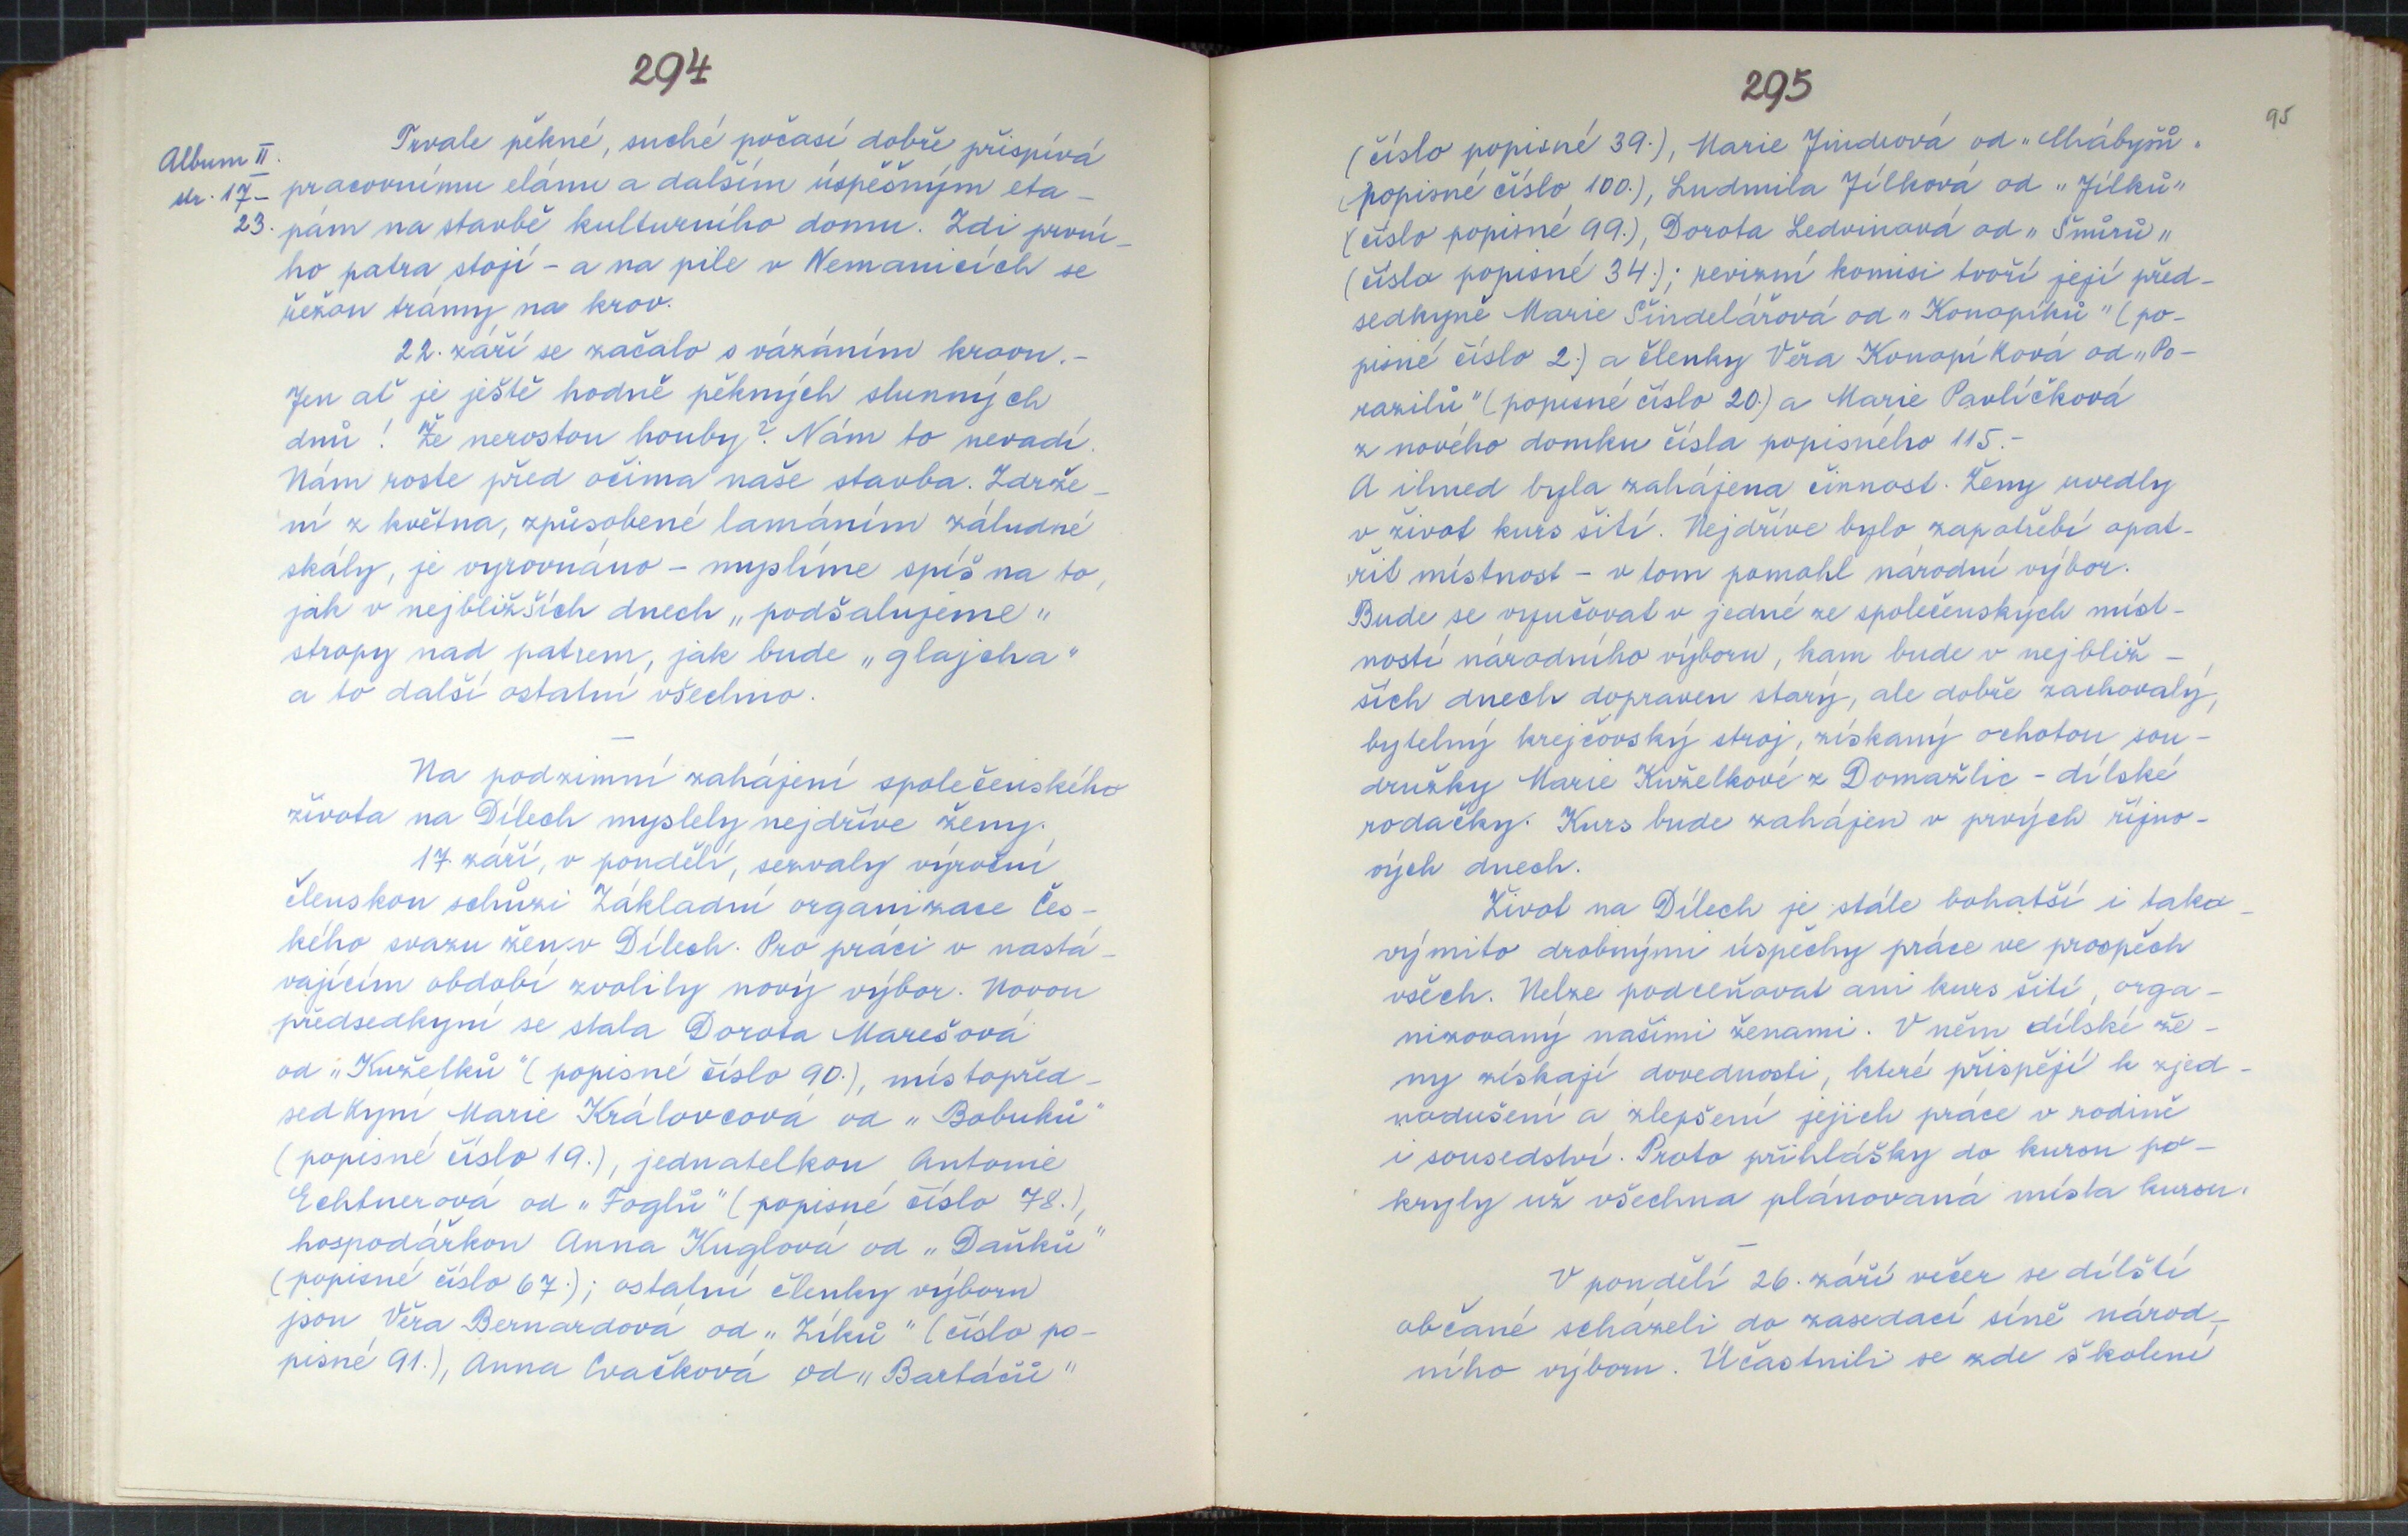 294
Album II.
str. 17-
23.
Trvale pěkné, suché počasí dobře přispívá
pracovnímu elánu a dalším úspěšným eta-
pám na stavbě kulturního domu. Zdi první-
ho patra stojí - a na pile v Nemanicích se
řežou trámy na krov.
22. září se začalo s vázáním krovu.-
Jen ať je ještě hodně pěkných slunných
dnů! Že nerostou houby? Nám to nevadí.
Nám roste před očima naše stavba. Zdrže-
ní z května, způsobené lamáním záludné
skály, je vyrovnáno - myslíme spíš na to,
jak v nejbližších dnech „podšalujeme"
stropy nad patrem, jak bude „glajcha"
a to další ostatní všechno.
—
Na podzimní zahájení společenského
života na Dílech myslely nejdříve ženy.
17. září, v pondělí, sezvaly výroční
členskou schůzi Základní organizace Čes-
kého svazu žen v Dílech. Pro práci v nastá-
vajícím období zvolily nový výbor. Novou
předsedkyní se stala Dorota Marešová
od „Kuželků" (popisné číslo 90.), místopřed-
sedkyní Marie Královcová od „Bobuků"
(popisné číslo 19.), jednatelkou Antonie
Echtnerová od „Foglů" (popisné číslo 78.),
hospodářkou Anna Kuglová od „Daňků"
(popisné číslo 67.); ostatní členky výboru
jsou Věra Bernardová od „Zíků" (číslo po-
pisné 91.), Anna Cvačková od „Bartáčů"
295
95
(číslo popisné 39.), Marie Jindrová od
(popisné číslo 100.), Ludmila Jílková od „Jílků"
(číslo popisné 99.), Dorota Ledvinová od „Šnůrů"
(číslo popisné 34.); revizní komisi tvoří její před-
sedkyně Marie Šindelářová od „Konopíků" (po-
pisné číslo 2.) a členky Věra Konopíková od „Po-
razilů" (popisné číslo 20.) a Marie Pavlíčková
z nového domku čísla popisného 115.-
A ihned byla zahájena činnost. Ženy uvedly
v život kurs šití. Nejdříve bylo zapotřebí opat-
řit místnost - v tom pomohl národní výbor.
Bude se vyučovat v jedné ze společenských míst-
ností národního výboru, kam bude v nejbliž-
ších dnech dopraven starý, ale dobře zachovalý,
bytelný krejčovský stroj, získaný ochotou sou-
družky Marie Kuželkové z Domažlic - dílské
rodačky. Kurs bude zahájen v prvých říjno-
vých dnech.
Život na Dílech je stále bohatší i tako-
výmito drobnými úspěchy práce ve prospěch
všech. Nelze podceňovat ani kurs šití, orga-
nizovaný našimi ženami. V něm dílské že-
ny získají dovednosti, které přispějí k zjed-
nodušení a zlepšení jejich práce v rodině
i sousedství. Proto přihlášky do kursu po-
kryly už všechna plánovaná místa kursu.
—
V pondělí 26. září večer se dílští
občané scházeli do zasedací síně národ-
ního výboru. Účastnili se zde školení